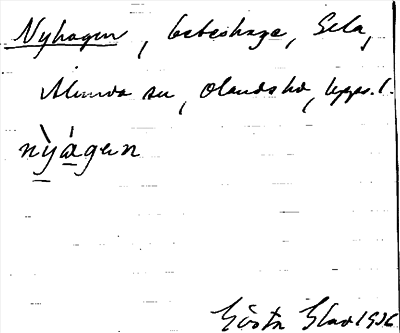 Nyhagen, beteshage, Sela,
Alunda sn, Olands hd, Upps. l.
nỳágen
Gösta Glav 1936